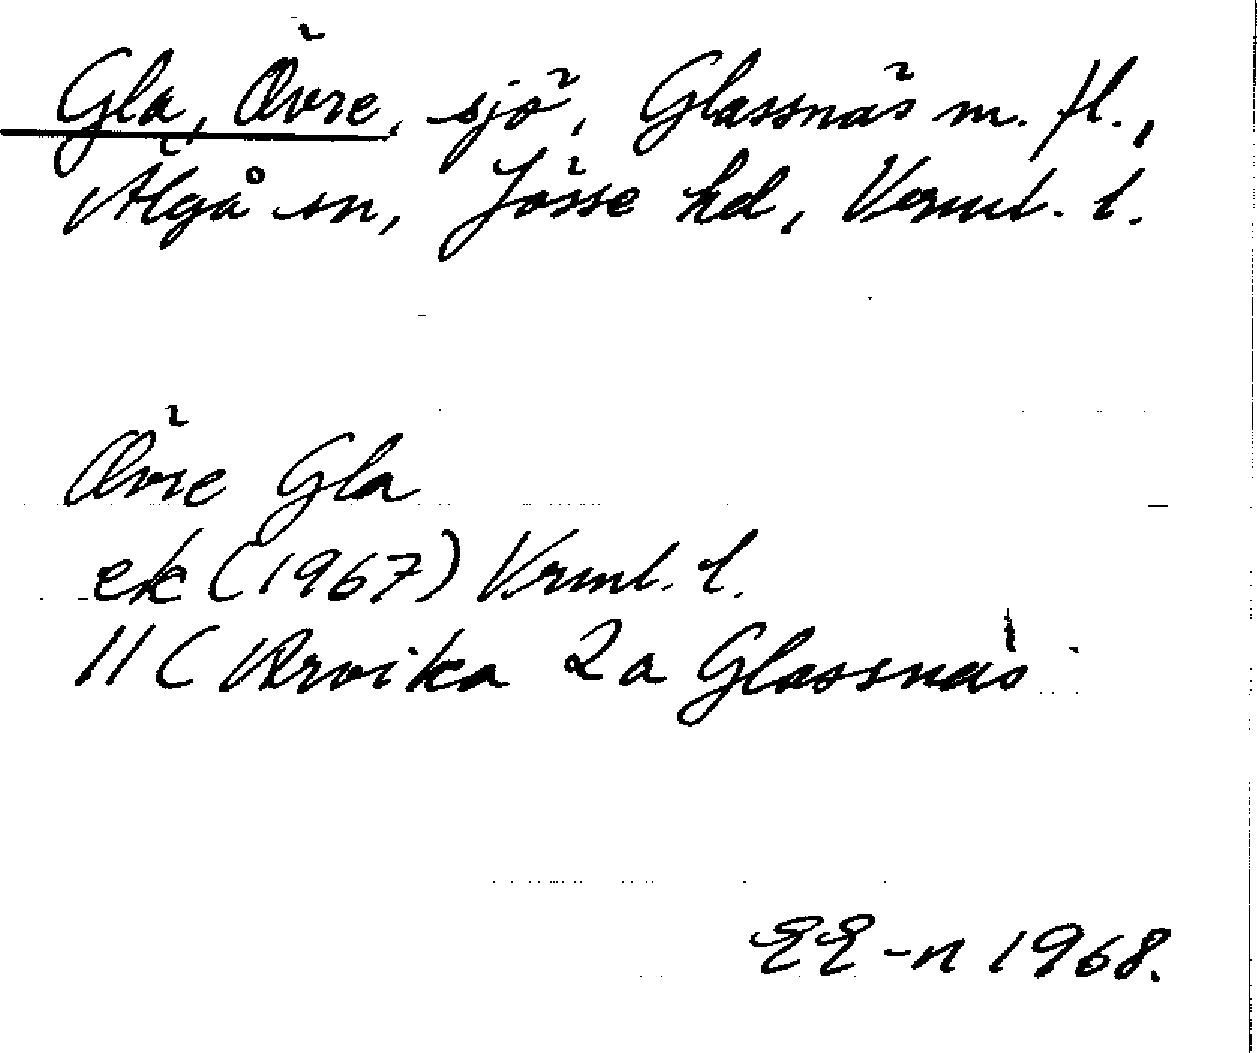 Gla, Övre, sjö, Glassnäs m. fl.,
Älgå sn, Jösse hd, Verml. l.
Övre Gla
ek (1967) Vrml. l.
11C Arvika 2a Glassnäs
EE-n 1968.